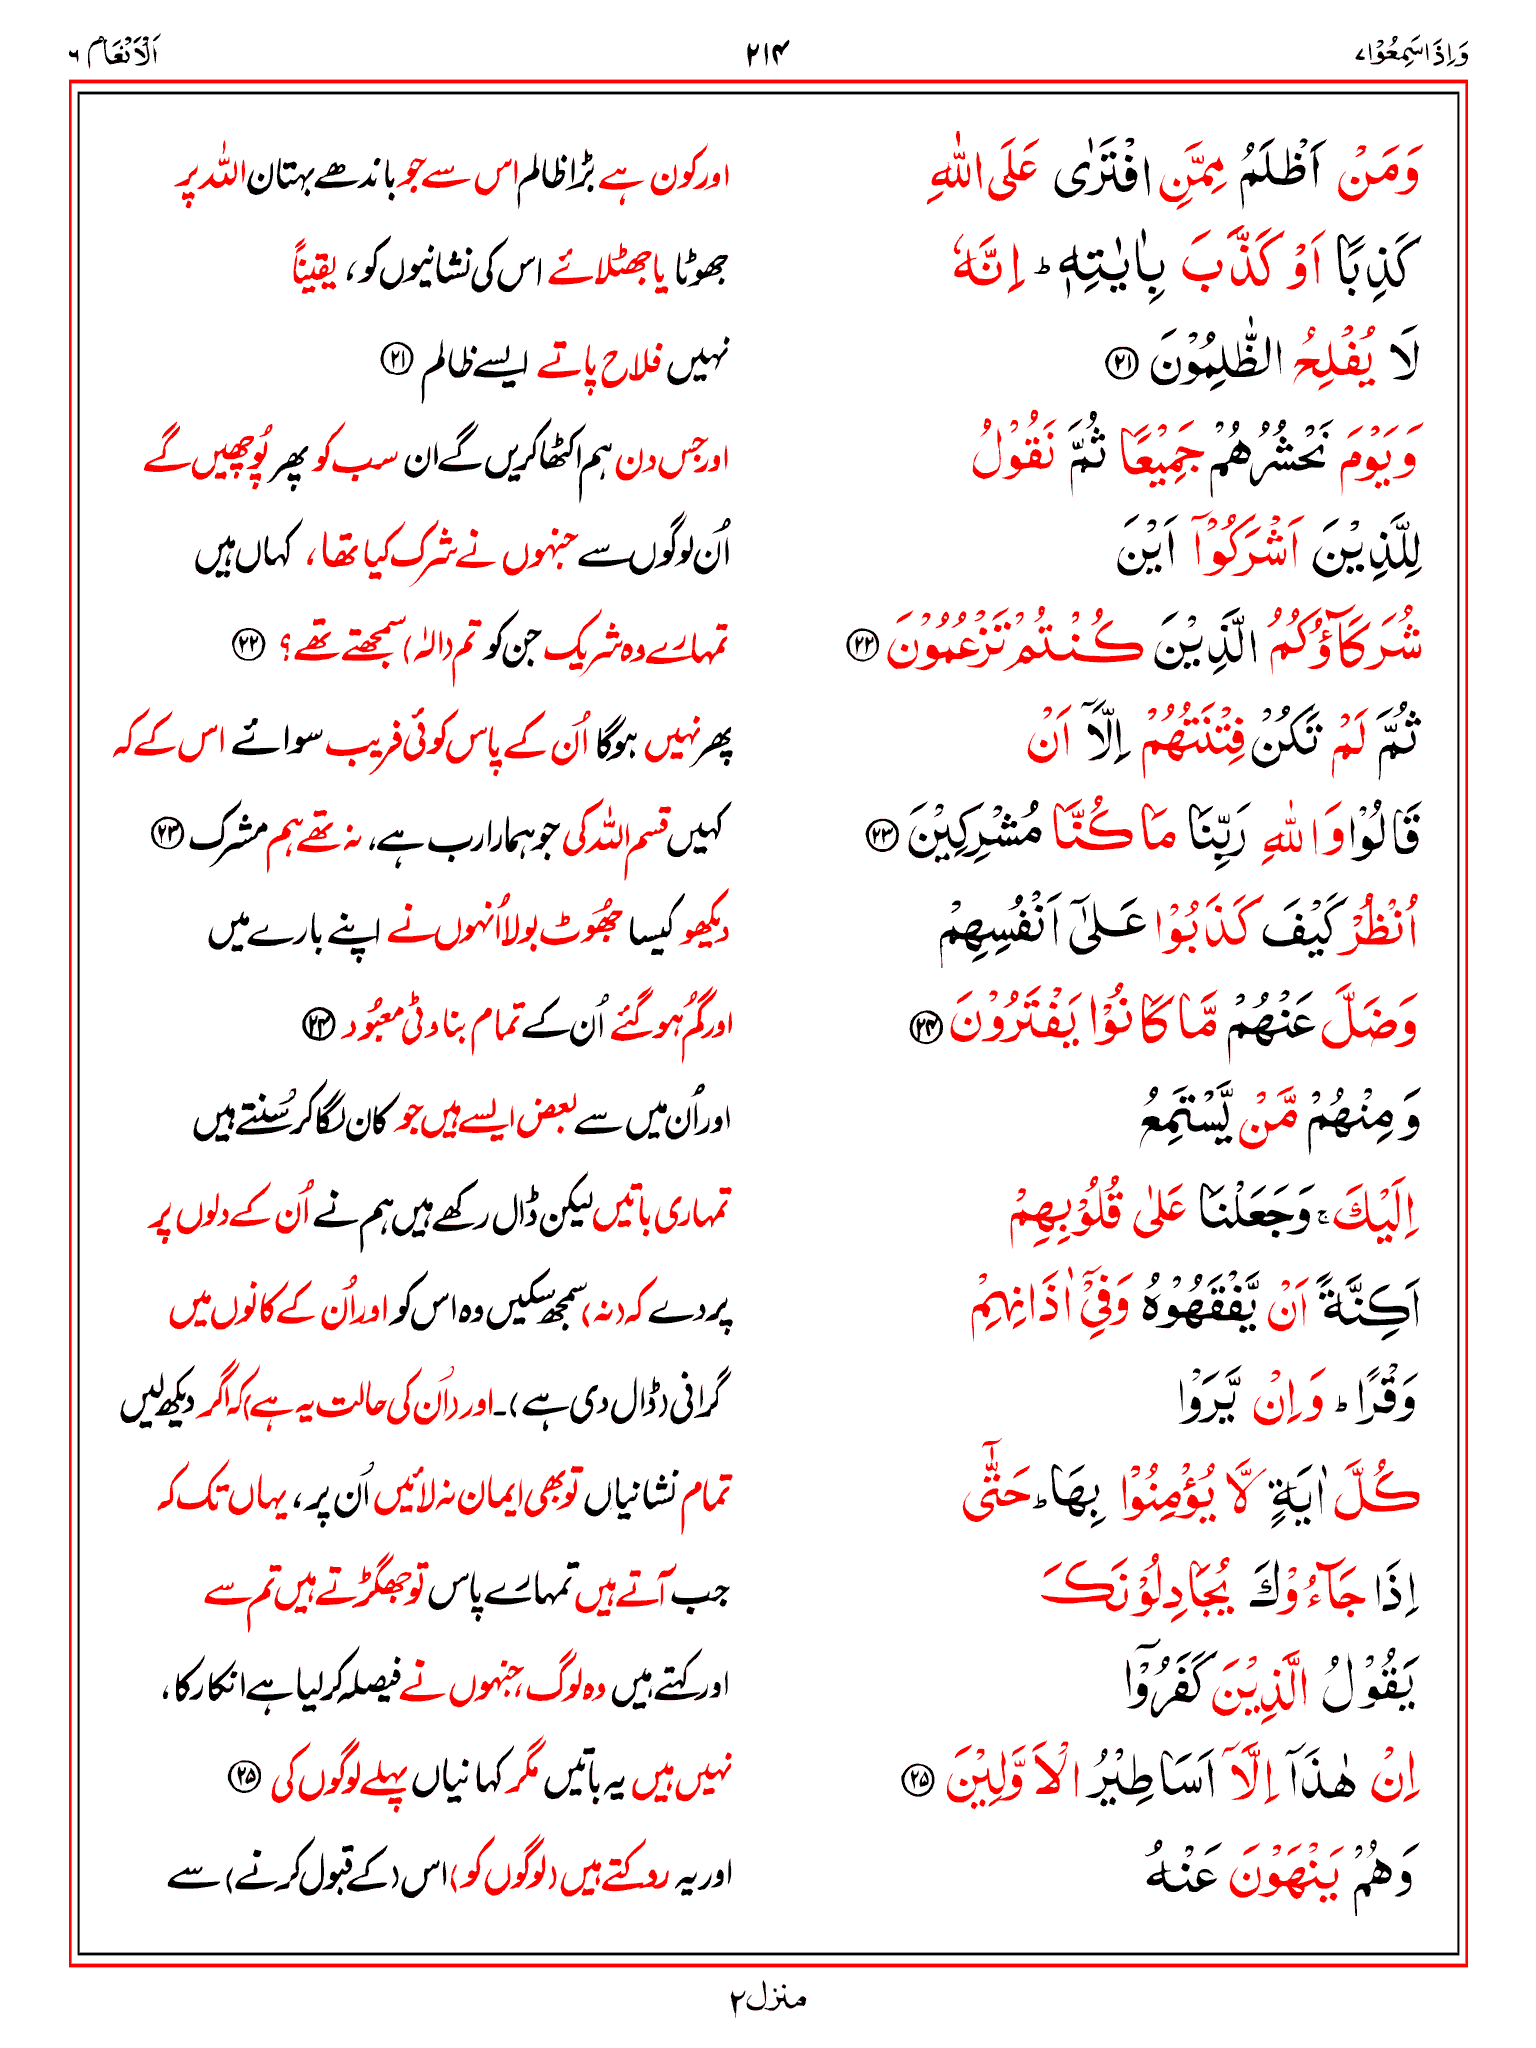 وَاِذَا سَمِعُوْا ٧ ٢١٤ اَلْاَنْعَام ٦
وَمَنْ اَظْلَمُ مِمَّنِ افْتَرٰى عَلَى اللّٰهِ اور کون ہے بڑا ظالم اس سے جو باندھے بہتان اللہ پر
كَذِبًا اَوْ كَذَّبَ بِاٰيٰتِهٖ ؕ اِنَّهٗ جھوٹا یا جھٹلائے اس کی نشانیوں کو، یقیناً
لَا يُفْلِحُ الظّٰلِمُوْنَ ۝٢١ نہیں فلاح پاتے ایسے ظالم ۝٢١
وَيَوْمَ نَحْشُرُهُمْ جَمِيْعًا ثُمَّ نَقُوْلُ اور جس دن ہم اکٹھا کریں گے ان سب کو پھر پُوچھیں گے
لِلَّذِيْنَ اَشْرَكُوْۤا اَيْنَ اُن لوگوں سے جنہوں نے شرک کیا تھا، کہاں ہیں
شُرَكَآؤُكُمُ الَّذِيْنَ كُنْتُمْ تَزْعُمُوْنَ ۝٢٢ تمہارے وہ شریک جن کو تم (الٰہ) سمجھتے تھے؟ ۝٢٢
ثُمَّ لَمْ تَكُنْ فِتْنَتُهُمْ اِلَّاۤ اَنْ پھر نہیں ہوگا اُن کے پاس کوئی فریب سوائے اس کے کہ
قَالُوْا وَاللّٰهِ رَبِّنَا مَا كُنَّا مُشْرِكِيْنَ ۝٢٣ کہیں قسم اللہ کی جو ہمارا رب ہے، نہ تھے ہم مشرک ۝٢٣
اُنْظُرْ كَيْفَ كَذَبُوْا عَلٰۤى اَنْفُسِهِمْ دیکھو کیسا جھُوٹ بولا اُنہوں نے اپنے بارے میں
وَضَلَّ عَنْهُمْ مَّا كَانُوْا يَفْتَرُوْنَ ۝٢٤ اور گُم ہو گئے اُن کے تمام بناوٹی معبُود ۝٢٤
وَمِنْهُمْ مَّنْ يَّسْتَمِعُ اور اُن میں سے بعض ایسے ہیں جو کان لگا کر سُنتے ہیں
اِلَيْكَ ۚ وَجَعَلْنَا عَلٰى قُلُوْبِهِمْ تمہاری باتیں لیکن ڈال رکھے ہیں ہم نے اُن کے دلوں پر
اَكِنَّةً اَنْ يَّفْقَهُوْهُ وَفِيْۤ اٰذَانِهِمْ پردے کہ (نہ) سمجھ سکیں وہ اس کو اور اُن کے کانوں میں
وَقْرًا ؕ وَاِنْ يَّرَوْا گرانی (ڈال دی ہے)۔ اور (اُن کی حالت یہ ہے) کہ اگر دیکھ لیں
كُلَّ اٰيَةٍ لَّا يُؤْمِنُوْا بِهَا ؕ حَتّٰۤى تمام نشانیاں تو بھی ایمان نہ لائیں اُن پر، یہاں تک کہ
اِذَا جَآءُوْكَ يُجَادِلُوْنَكَ جب آتے ہیں تمہارے پاس تو جھگڑتے ہیں تم سے
يَقُوْلُ الَّذِيْنَ كَفَرُوْۤا اور کہتے ہیں وہ لوگ، جنہوں نے فیصلہ کر لیا ہے انکار کا،
اِنْ هٰذَاۤ اِلَّاۤ اَسَاطِيْرُ الْاَوَّلِيْنَ ۝٢٥ نہیں ہیں یہ باتیں مگر کہانیاں پہلے لوگوں کی ۝٢٥
وَهُمْ يَنْهَوْنَ عَنْهُ اور یہ روکتے ہیں (لوگوں کو) اس (کے قبول کرنے) سے
منزل ٢